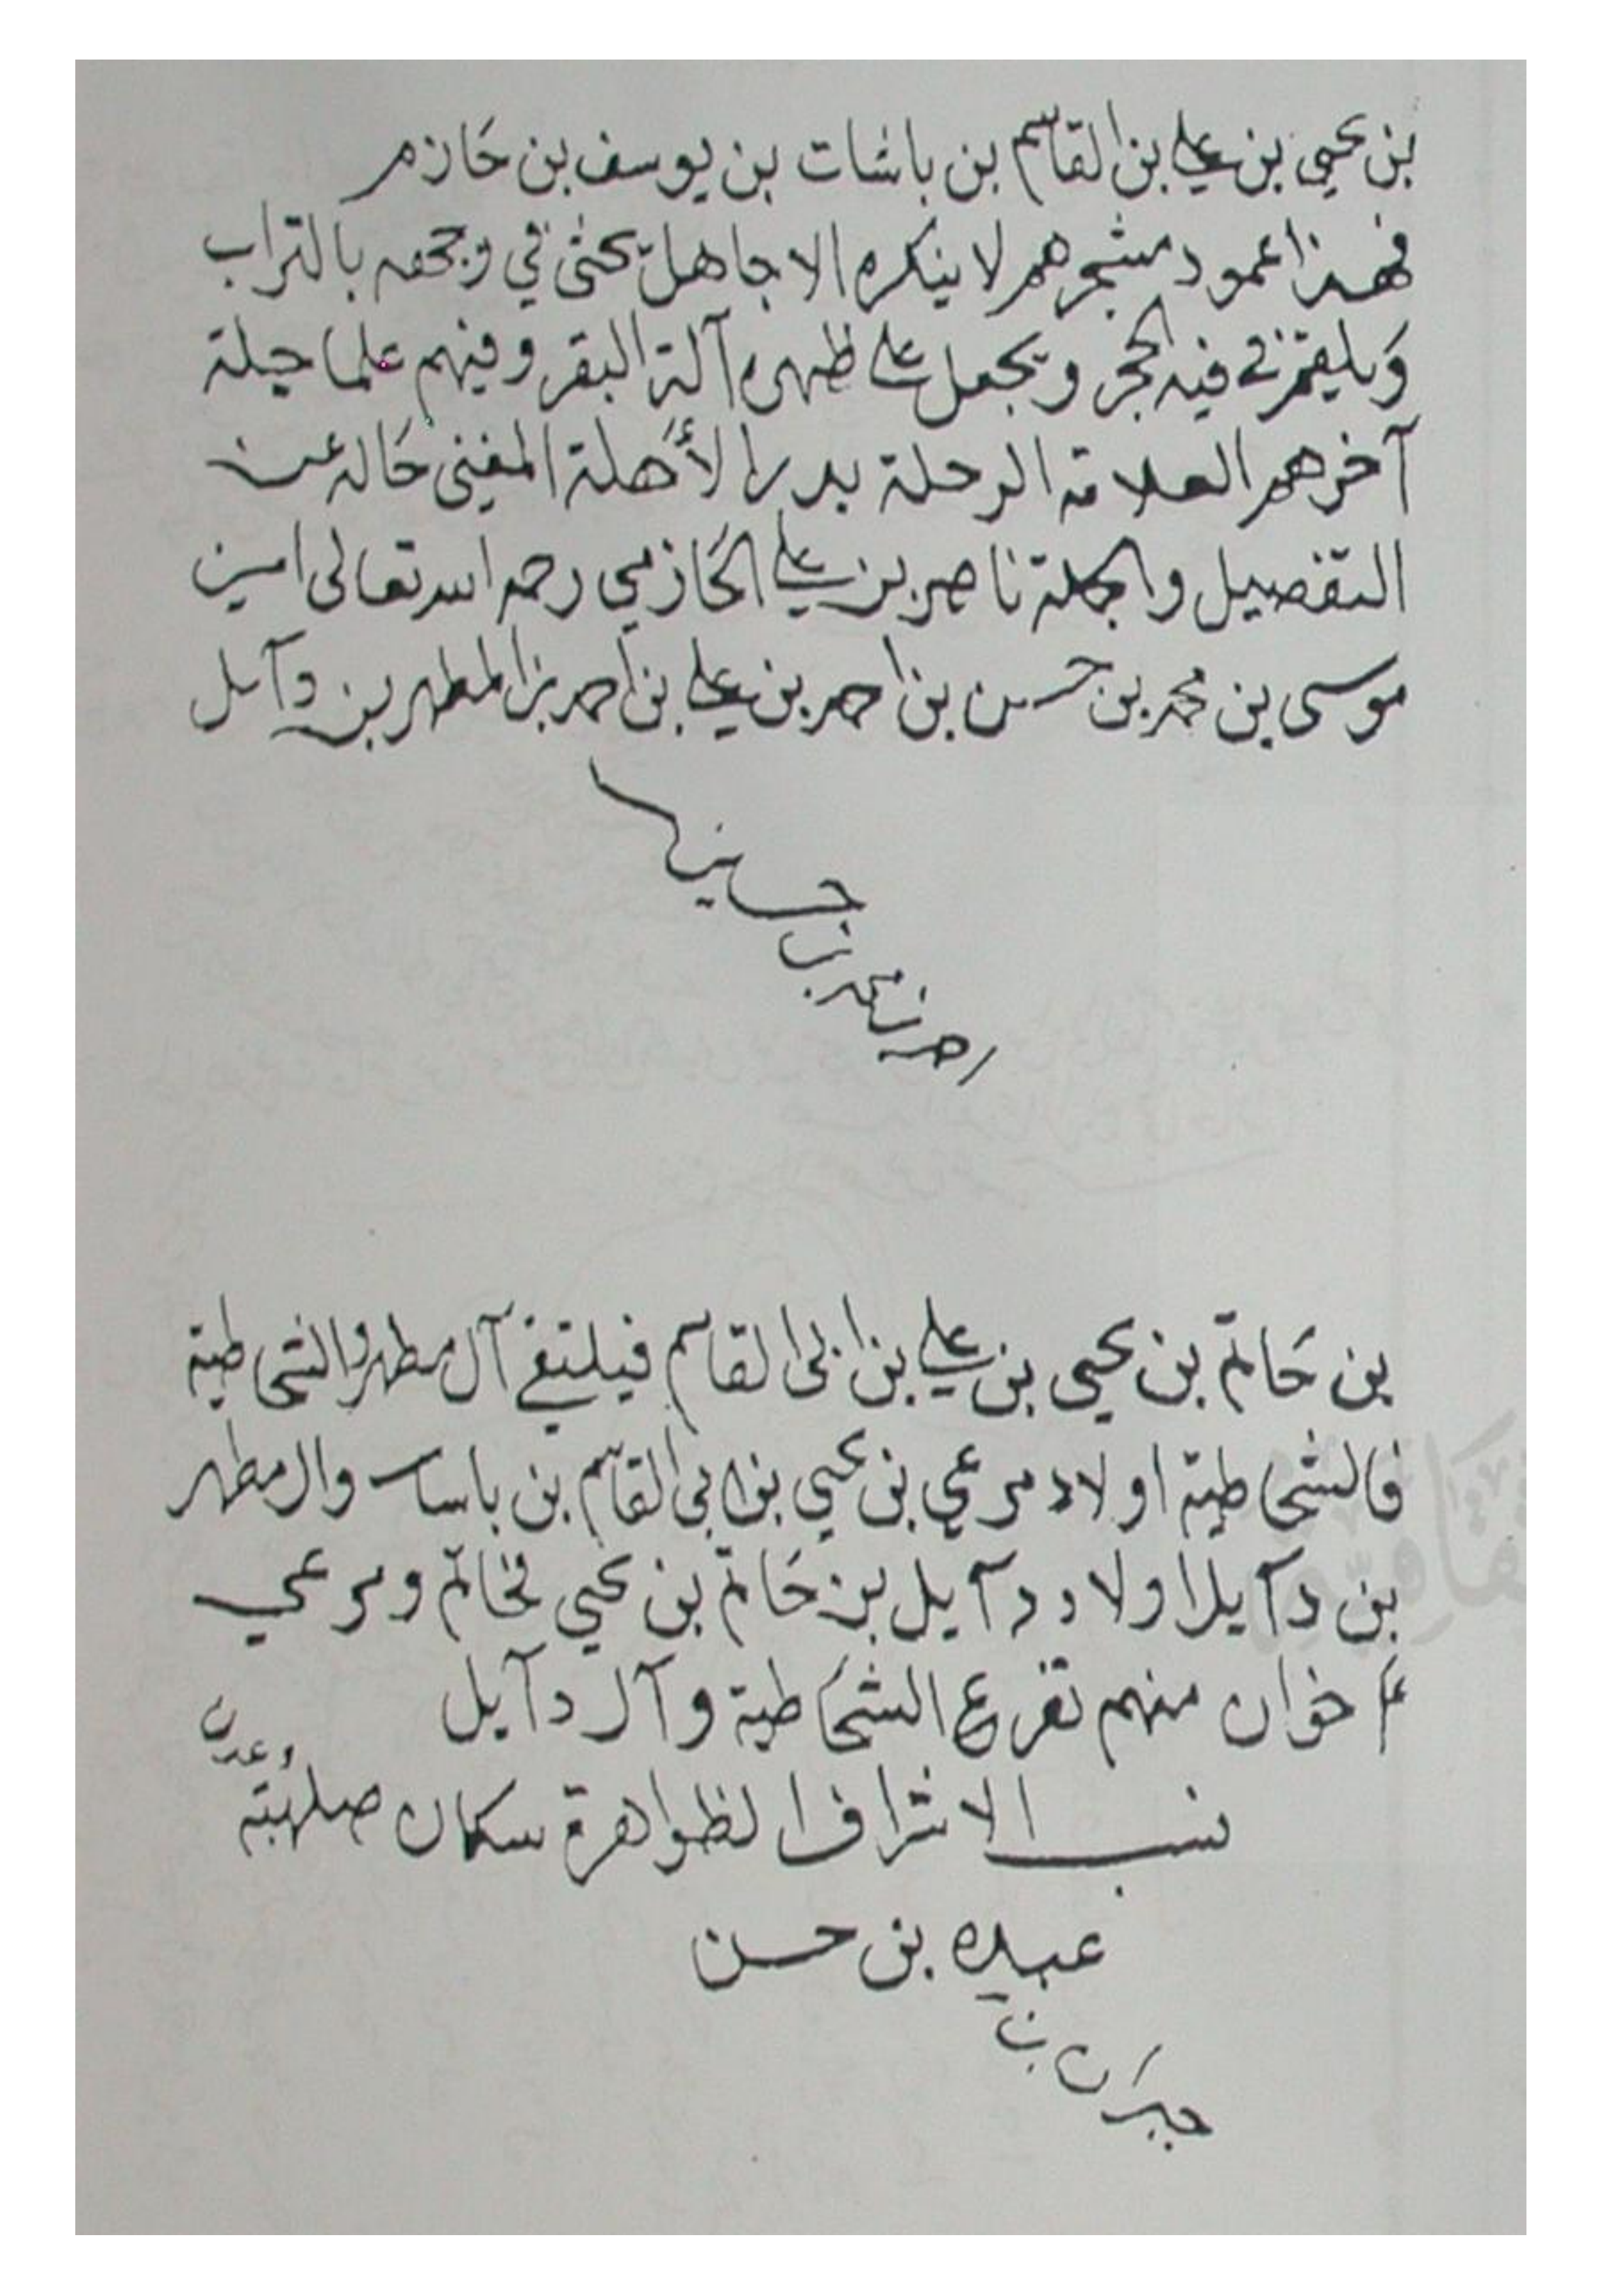 بن يحيى بن علي بن القاسم بن باشات بن يوسف بن حَازم
فهذا عمود مشجرهم لا ينكره الا جاهل يحثى في وجهه بالتراب
وَيلقم في فيه الحجر ويجعل على ظهره آلة البقر وفيهم علما جلة
آخرهم العلامة الرحلة بدر الأهلة المغني حَاله عن
التفصيل والجملة ناصر بن علي الحَازمي رحمه الله تعالى امين
موسى بن محمد بن حسن بن احمد بن علي بن احمد بن المطهر بن دآيل
احمد بن محمد بن حسين
بن حَاتم بن يحيى بن علي بن ابى القاسم فيلتقي آل مطهر والشحاطية
فالشحاطية اولاد مرعي بن يحيي بن ابى القاسم بن باسات وال مطهر
بن دآيل اولاد دآيل بن حَاتم بن يحيي فحَاتم ومرعي
اخوان منهم تفرع الشحَاطية وآل دآيل
نسب الاشراف الظواهرة سكان صلهبة وعدن
عبده بن حسن
جبران بن